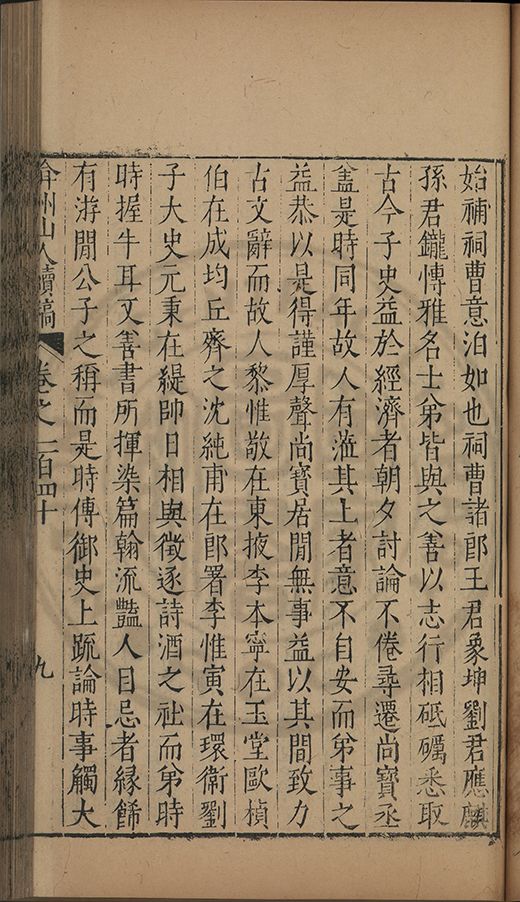 始補祠曹意泊如也祠曹諸郎王君象坤劉君應麒
孫君鑨慱雅名士弟皆與之善以志行相砥礪悉取
古今子史益於經濟者朝夕討論不倦尋遷尚寳丞
盖是時同年故人有涖其上者意不自安而弟事之
益恭以是得謹厚聲尚寳居閒無事益以其間致力
古文辭而故人黎惟敬在東掖李本寧在玉堂歐楨
伯在成均丘齊之沈純甫在郎署李惟寅在環衛劉
子大史元秉在緹帥日相與徵逐詩酒之社而弟時
時握牛耳又善書所揮染篇翰流豔人目忌者緣餙
有游閒公子之稱而是時傅御史上疏論時事觸大
弇州山人續稿 卷之一百四十 九